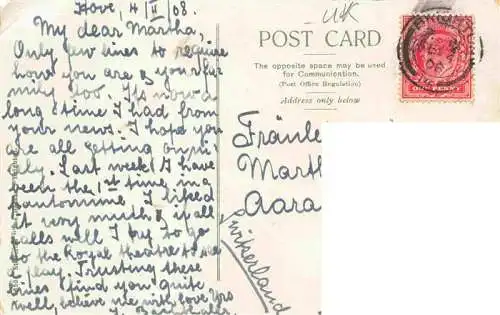 Hove, 4/II/08.
My dear Martha,
Only few lines to require
how you are & your fa-
mily too. It's now a
long time I had from
your news. I hope you
are all getting on ni-
cely. Last week I have
been the 1st time in a
pantomime. I liked
it very much & if all
calls well I try to go
to the Royal theatre to see
a play. Trusting these
lines find you quite
well, believe me with love Yrs
UK
POST CARD
The opposite space may be used
for Communication.
(Post Office Regulation)
Address only below
ONE PENNY
Fräule
Mart
Aara
Switzerland